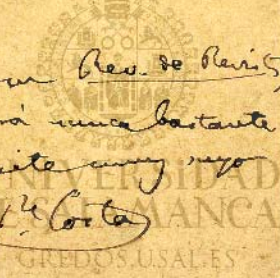 Rev. de Revist,
nunca bastante
muy suyo
Costa
UNIVERSIDAD
SALAMANCA
GREDOS.USAL.ES